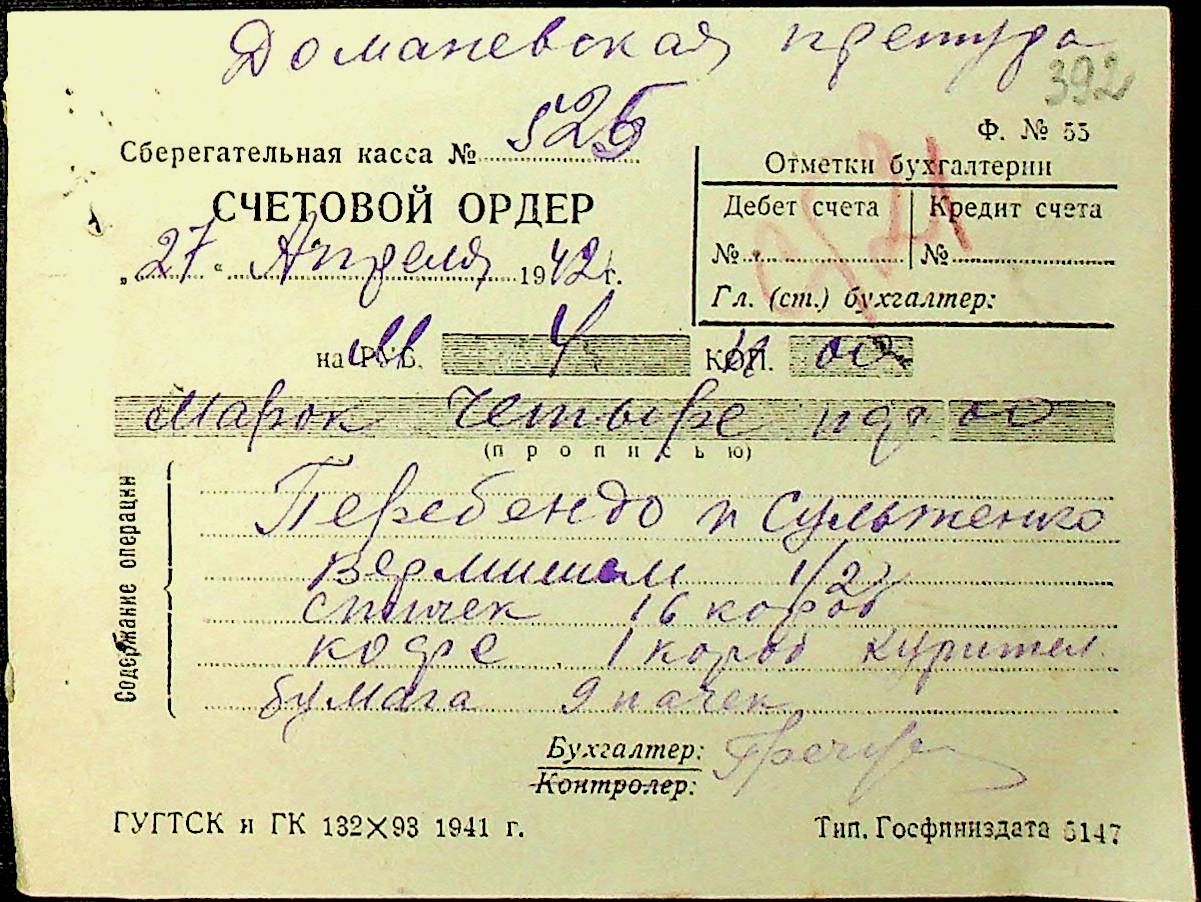 Доманевская претура
392
Ф. № 55
Сберегательная касса № 525
Отметки бухгалтерии
СЧЕТОВОЙ ОРДЕР
Дебет счета Кредит счета
„27“ Апреля 1942 г.
№ №
Гл. (ст.) бухгалтер:
на РУБ. 4 КОП. 00
Марок Четыре пф 00
(прописью)
Содержание операции
Перебендо и Сульженко
Вермишели 1/2
спичек 16 короб
кофе 1 короб курител.
бумага 9 пачек
Бухгалтер:
Контролер:
ГУГТСК и ГК 132×93 1941 г.
Тип. Госфиниздата 5147